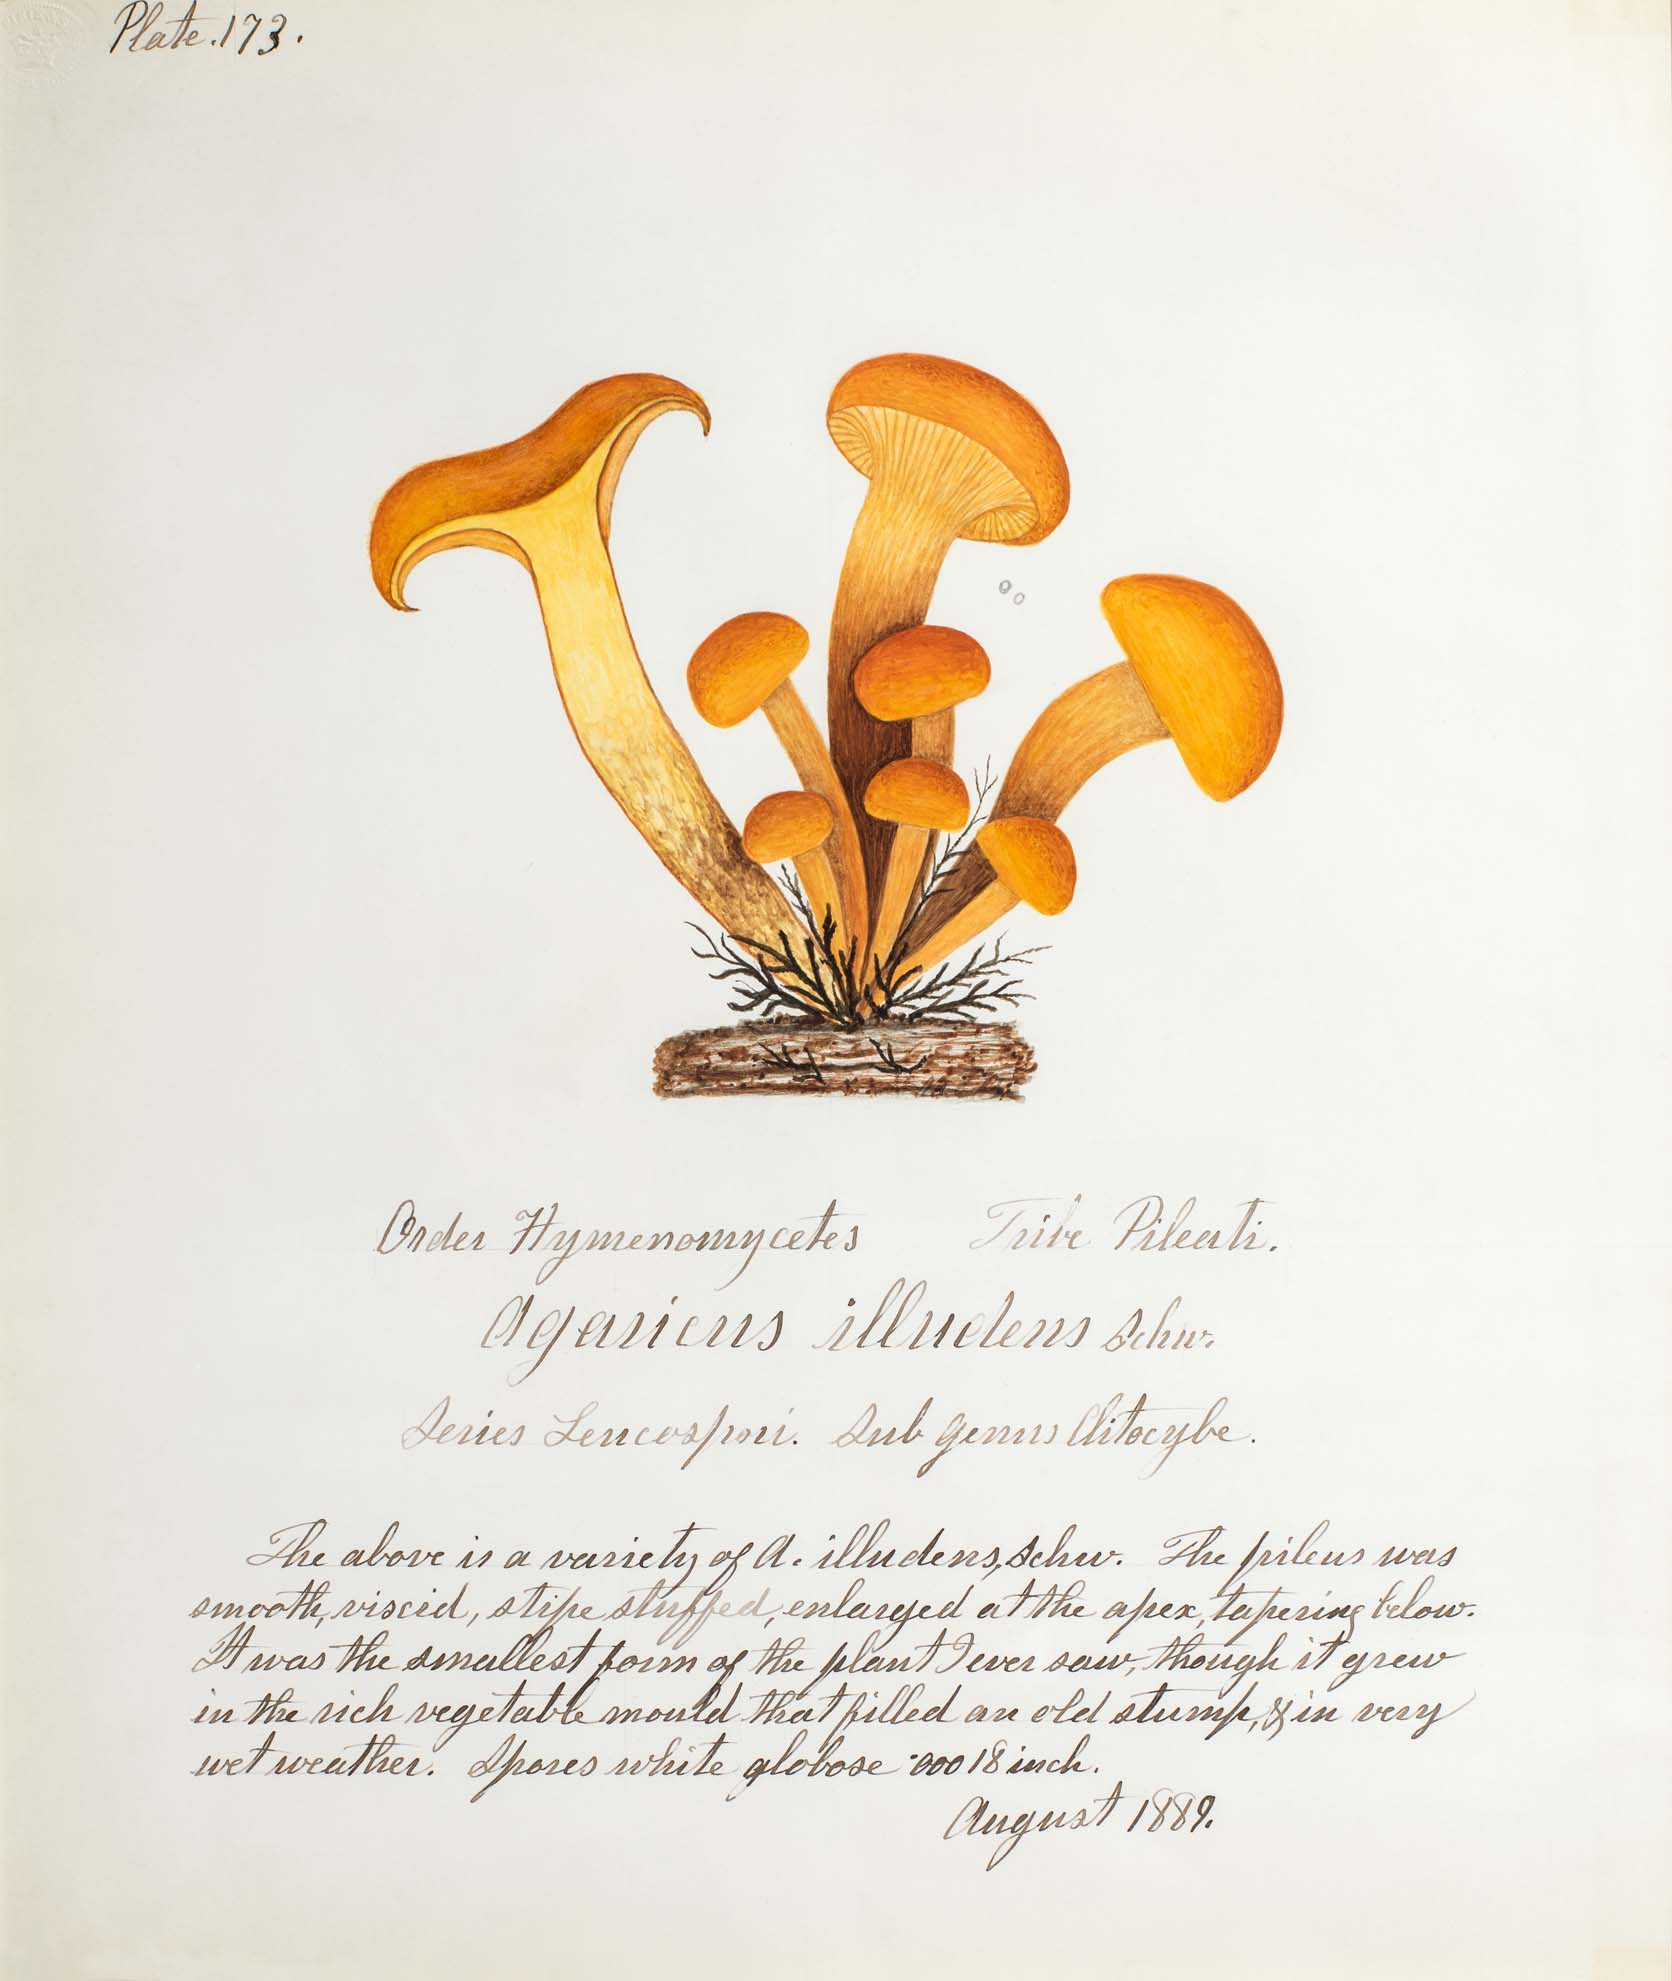 Plate. 173.
Order Hymenomycetes Tribe Pileati.
Agaricus illudens Schw.
Series Leucospori. Sub genus Clitocybe.
The above is a variety of A. illudens, Schw. The pileus was
smooth, viscid, stipe stuffed, enlarged at the apex, tapering below.
It was the smallest form of the plant I ever saw, though it grew
in the rich vegetable mould that filled an old stump, & in very
wet weather. Spores white globose .00018 inch.
August 1889.